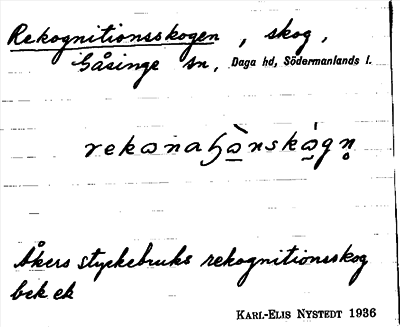 Rekognitionsskogen, skog,
Gåsinge sn, Daga hd, Södermanlands l.
rekɷnaɧɷ̀nskɷ̀gn̥
Åkers styckebruks rekognitionsskog
bek ek
KARL-ELIS NYSTEDT 1936